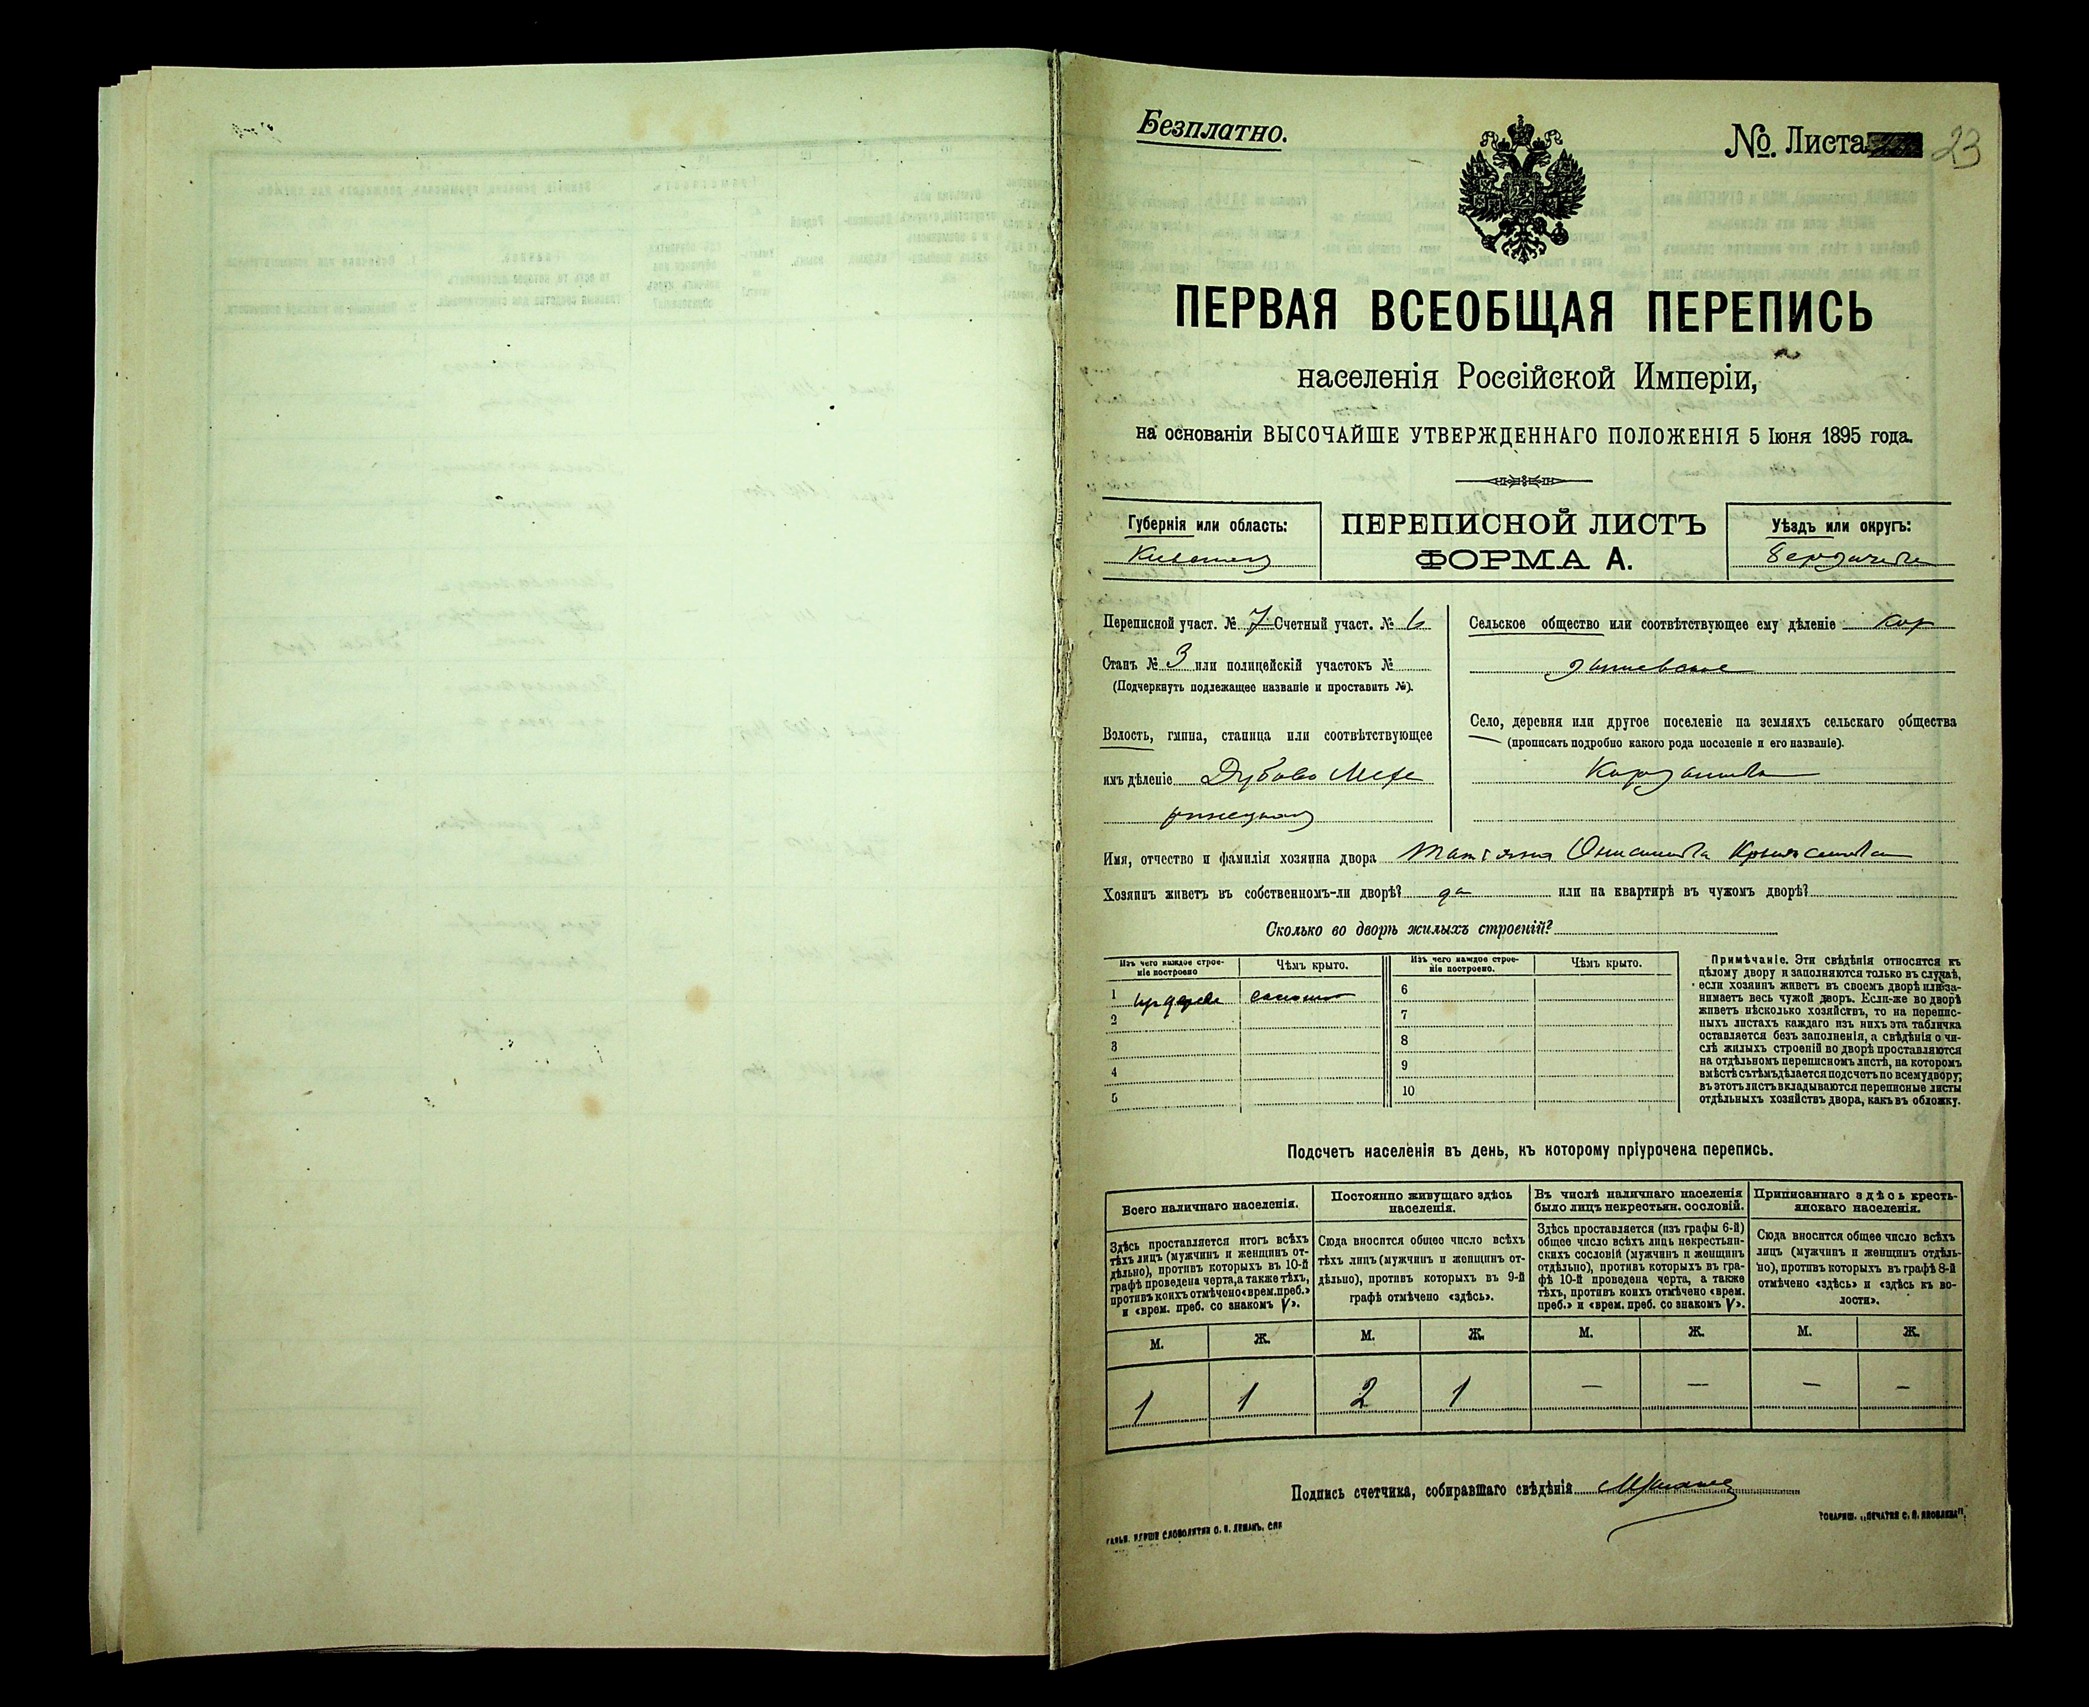 Безплатно.
№. Листа 23
ПЕРВАЯ ВСЕОБЩАЯ ПЕРЕПИСЬ
населенія Россійской Имперіи,
на основаніи ВЫСОЧАЙШЕ УТВЕРЖДЕННАГО ПОЛОЖЕНІЯ 5 Іюня 1895 года.
Губернія или область:
Киевская
ПЕРЕПИСНОЙ ЛИСТЪ
ФОРМА А.
Уѣздъ или округъ:
Бердичевс
Переписной участ. № 7 Счетный участ. № 6
Станъ № 3 или полицейскій участокъ №
(Подчеркнуть подлежащее названіе и проставить №).
Волость, гмина, станица или соотвѣтствующее
имъ дѣленіе Дубово Меха
ринецкая
Сельское общество или соотвѣтствующее ему дѣленіе Кор
Село, деревня или другое поселеніе на земляхъ сельскаго общества
(прописать подробно какого рода поселеніе и его названіе).
Имя, отчество и фамилія хозяина двора
Хозяинъ живетъ въ собственномъ-ли дворѣ? да или на квартирѣ въ чужомъ дворѣ?
Сколько во дворѣ жилыхъ строеній?
Изъ чего каждое строе-
ніе построено
Чѣмъ крыто.
Изъ чего каждое строе-
ніе построено.
Чѣмъ крыто.
1
2
3
4
5
6
7
8
9
10
Примѣчаніе. Эти свѣдѣнія относятся къ
цѣлому двору и заполняются только въ случаѣ,
если хозяинъ живетъ въ своемъ дворѣ или за-
нимаетъ весь чужой дворъ. Если-же во дворѣ
живетъ нѣсколько хозяйствъ, то на перепис-
ныхъ листахъ каждаго изъ нихъ эта табличка
оставляется безъ заполненія, а свѣдѣнія о чи-
слѣ жилыхъ строеній во дворѣ проставляются
на отдѣльномъ переписномъ листѣ, на которомъ
вмѣстѣ съ тѣмъ дѣлается подсчетъ по всему двору;
въ этотъ листъ вкладываются переписные листы
отдѣльныхъ хозяйствъ двора, какъ въ обложку.
Подсчетъ населенія въ день, къ которому пріурочена перепись.
Всего наличнаго населенія.
Здѣсь проставляется итогъ всѣхъ
тѣхъ лицъ (мужчинъ и женщинъ от-
дѣльно), противъ которыхъ въ 10-й
графѣ проведена черта, а также тѣхъ,
противъ коихъ отмѣчено «врем. преб.»
и «врем. преб. со знакомъ V».
Постоянно живущаго здѣсь
населенія.
Сюда вносится общее число всѣхъ
тѣхъ лицъ (мужчинъ и женщинъ от-
дѣльно), противъ которыхъ въ 9-й
графѣ отмѣчено «здѣсь».
Въ числѣ наличнаго населенія
было лицъ некрестьян. сословій.
Здѣсь проставляется (изъ графы 6-й)
общее число всѣхъ лицъ некрестьян-
скихъ сословій (мужчинъ и женщинъ
отдѣльно), противъ которыхъ въ гра-
фѣ 10-й проведена черта, а также
тѣхъ, противъ коихъ отмѣчено «врем.
преб.» и «врем. преб. со знакомъ V».
Приписаннаго здѣсь кресть-
янскаго населенія.
Сюда вносится общее число всѣхъ
лицъ (мужчинъ и женщинъ отдѣль-
но), противъ которыхъ въ графѣ 8-й
отмѣчено «здѣсь» и «здѣсь къ во-
лости».
М. Ж. М. Ж. М. Ж. М. Ж.
1 1 2 1 — — — —
Подпись счетчика, собиравшаго свѣдѣнія
ТОВАРИЩ. „ПЕЧАТНЯ С. П. ЯКОВЛЕВА".